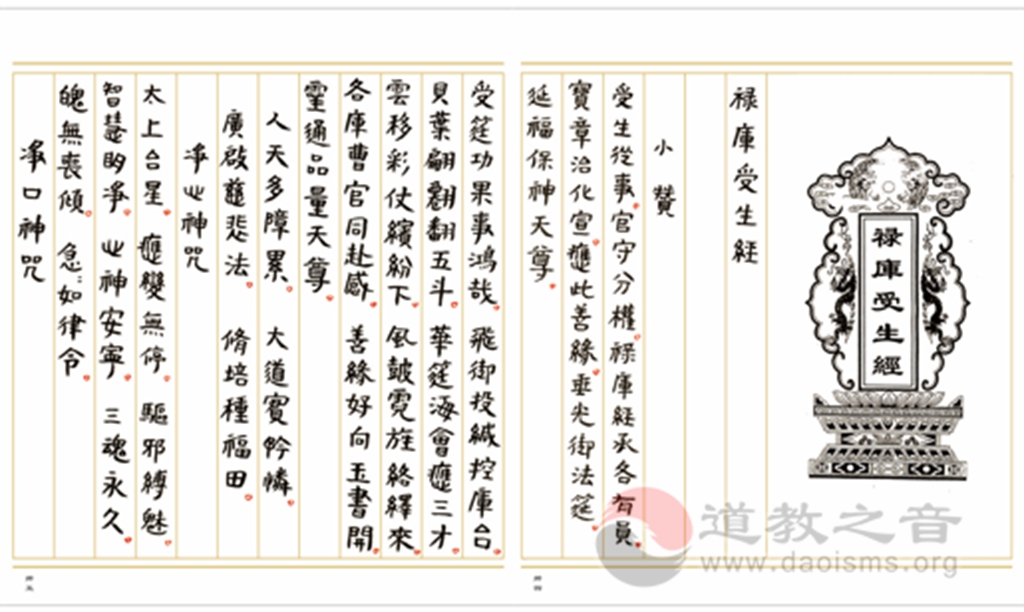 祿庫受生經
禄庫受生經
小讚
受生從事官守分權禄庫經承各有員
寶章治化宣應此善緣垂光御法筵
延福保神天尊
受筵功果事鴻哉 飛御投緘控庫台
貝葉翩翻翻五斗 華筵海會應三才
雲移彩仗繽紛下 風鼓霓旌絡繹來
各庫曹官同赴感 善緣好向玉書開
靈通品量天尊
人天多障累 大道實矜憐
廣啟慈悲法 脩培種福田
淨心神咒
太上台星 應變無停 驅邪縛魅
智慧明淨 心神安寧 三魂永久
魄無喪傾 急急如律令
淨口神咒
道教之音
www.daoisms.org